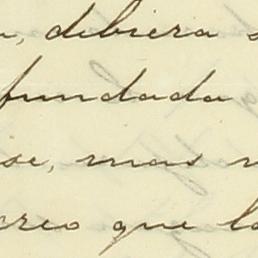 , debiera
fundada
se, mas
creo que